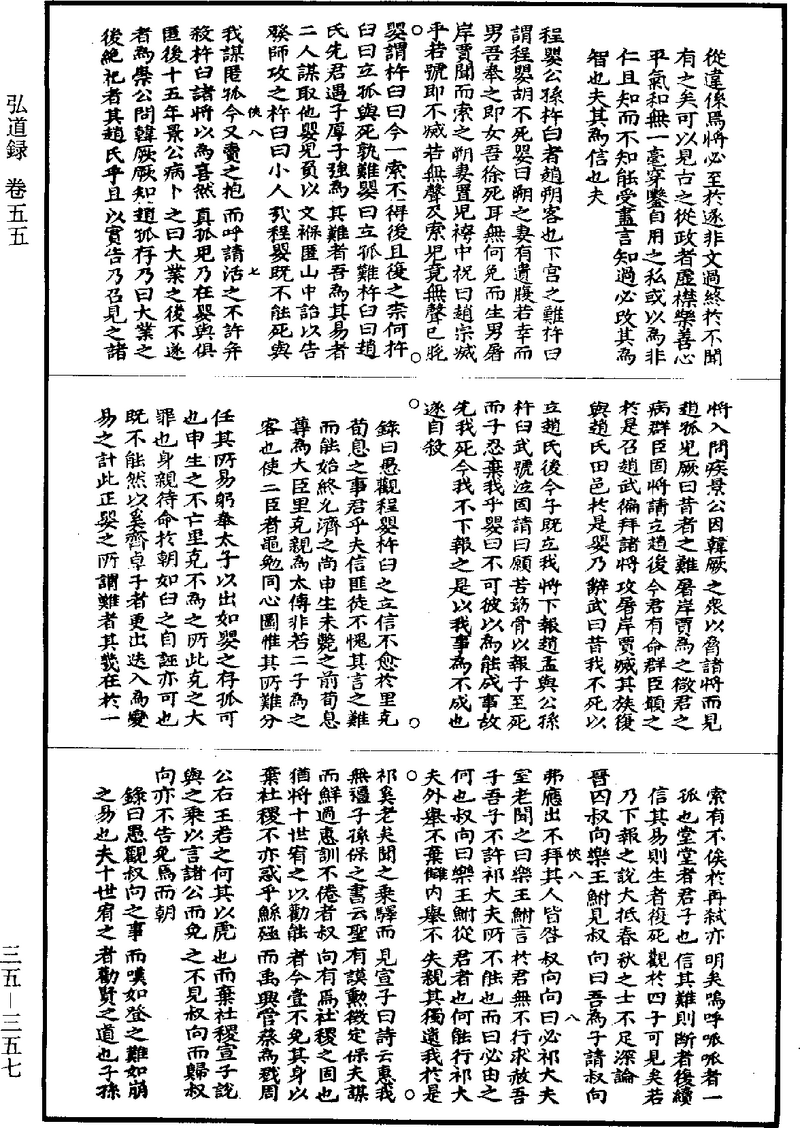 弘道録 卷五五
三五—三五七
從違係焉將必至於遂非文過終於不聞
有之矣可以見古之從政者虛襟樂善心
平氣和無一毫穿鑿自用之私或以為非
仁且知而不知能受盡言知過必改其為
智也夫其為信也夫
程嬰公孫杵臼者趙朔客也下宮之難杵臼
謂程嬰胡不死嬰曰朔之妻有遺腹若幸而
男吾奉之即女吾徐死耳無何免而生男屠
岸賈聞而索之朔妻置兒袴中祝曰趙宗滅
乎若號即不滅若無聲及索兒竟無聲已脫
嬰謂杵臼曰今一索不得後且復之柰何杵
臼曰立孤與死孰難嬰曰立孤難杵臼曰趙
氏先君遇子厚子強為其難者吾為其易者
二人謀取他嬰兒負以文褓匿山中詒以告
發師攻之杵臼曰小人哉程嬰既不能死與
俠八 七
我謀匿孤今又賣之抱而呼請活之不許并
殺杵臼諸將以為喜然真孤兒乃在嬰與俱
匿後十五年景公病卜之曰大業之後不遂
者為祟公問韓厥厥知趙孤存乃曰大業之
後絶祀者其趙氏乎且以實告乃召見之諸
將入問疾景公因韓厥之衆以脅諸將而見
趙孤兒厥曰昔者之難屠岸賈為之微君之
病群臣固將請立趙後今君有命群臣願之
於是召趙武徧拜諸將攻屠岸賈滅其族復
與趙氏田邑於是嬰乃辭武曰昔我不死以
立趙氏後今子既立我將下報趙孟與公孫
杵臼武號泣固請曰願苦筋骨以報子至死
而子忍棄我乎嬰曰不可彼以為能成事故
先我死今我不下報之是以我事為不成也
遂自殺
錄曰愚觀程嬰杵臼之立信不愈於里克
荀息之事君乎夫信匪徒不愧其言之難
而能始終允濟之尚申生未斃之前荀息
尊為大臣里克親為太傅非若二子為之
客也使二臣者黽勉同心圖惟其所難分
任其所易躬奉太子以出如嬰之存孤可
也申生之不亡里克不為之所此克之大
罪也身親待命於朝如臼之自誣亦可也
既不能然以奚齊卓子者更出迭入為變
易之計此正嬰之所謂難者其幾在於一
索有不俟於再弑亦明矣嗚呼呱呱者一
孤也堂堂者君子也信其難則斷者復續
信其易則生者復死觀於四子可見矣若
乃下報之說大抵春秋之士不足深論
晉囚叔向樂王鮒見叔向曰吾為子請叔向
俠八 八
弗應出不拜其人皆咎叔向向曰必祁大夫
室老聞之曰樂王鮒言於君無不行求赦吾
子吾子不許祁大夫所不能也而曰必由之
何也叔向曰樂王鮒從君者也何能行祁大
夫外舉不棄讎內舉不失親其獨遺我於是
祁奚老矣聞之乘驛而見宣子曰詩云惠我
無疆子孫保之書云聖有謨勲徵定保夫謀
而鮮過惠訓不倦者叔向有焉社稷之固也
猶將十世宥之以勸能者今壹不免其身以
棄社稷不亦惑乎鯀殛而禹興管蔡為戮周
公右王若之何其以虎也而棄社稷宣子說
與之乘以言諸公而免之不見叔向而歸叔
向亦不告免焉而朝
錄曰愚觀叔向之事而嘆如登之難如崩
之易也夫十世宥之者勸賢之道也子孫